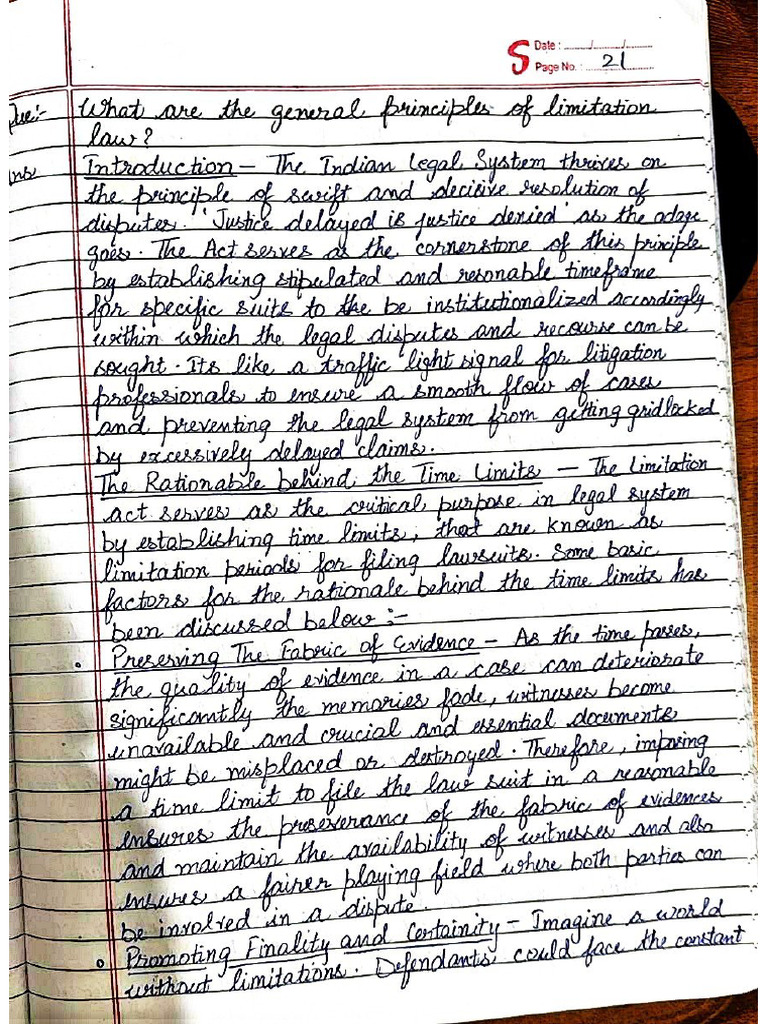 S Date : ......./......./.......
Page No. : 21
Que:- What are the general principles of limitation
law?
Ans Introduction - The Indian Legal System thrives on
the principle of swift and decisive resolution of
disputes. 'Justice delayed is justice denied' as the adage
goes. The Act serves as the cornerstone of this principle
by establishing stipulated and resonable timeframe
for specific suits to the be institutionalized accordingly
within which the legal disputes and recourse can be
sought. Its like a traffic light signal for litigation
professionals to ensure a smooth flow of cases
and preventing the legal system from getting gridlocked
by excessively delayed claims.
The Rationable behind the Time Limits - The Limitation
act serves as the critical purpose in legal system
by establishing time limits, that are known as
limitation periods for filing lawsuits. Some basic
factors for the rationale behind the time limits has
been discussed below :-
• Preserving The Fabric of Evidence - As the time passes,
the quality of evidence in a case can deteriorate
significantly the memories fade, witnesses become
unavailable and crucial and essential documents
might be misplaced or destroyed. Therefore, imposing
a time limit to file the law suit in a reasonable
ensures the preseverance of the fabric of evidences
and maintain the availability of witnesses and also
ensures a fairer playing field where both parties can
be involved in a dispute.
• Promoting Finality and Certainity - Imagine a world
without limitations. Defendants could face the constant